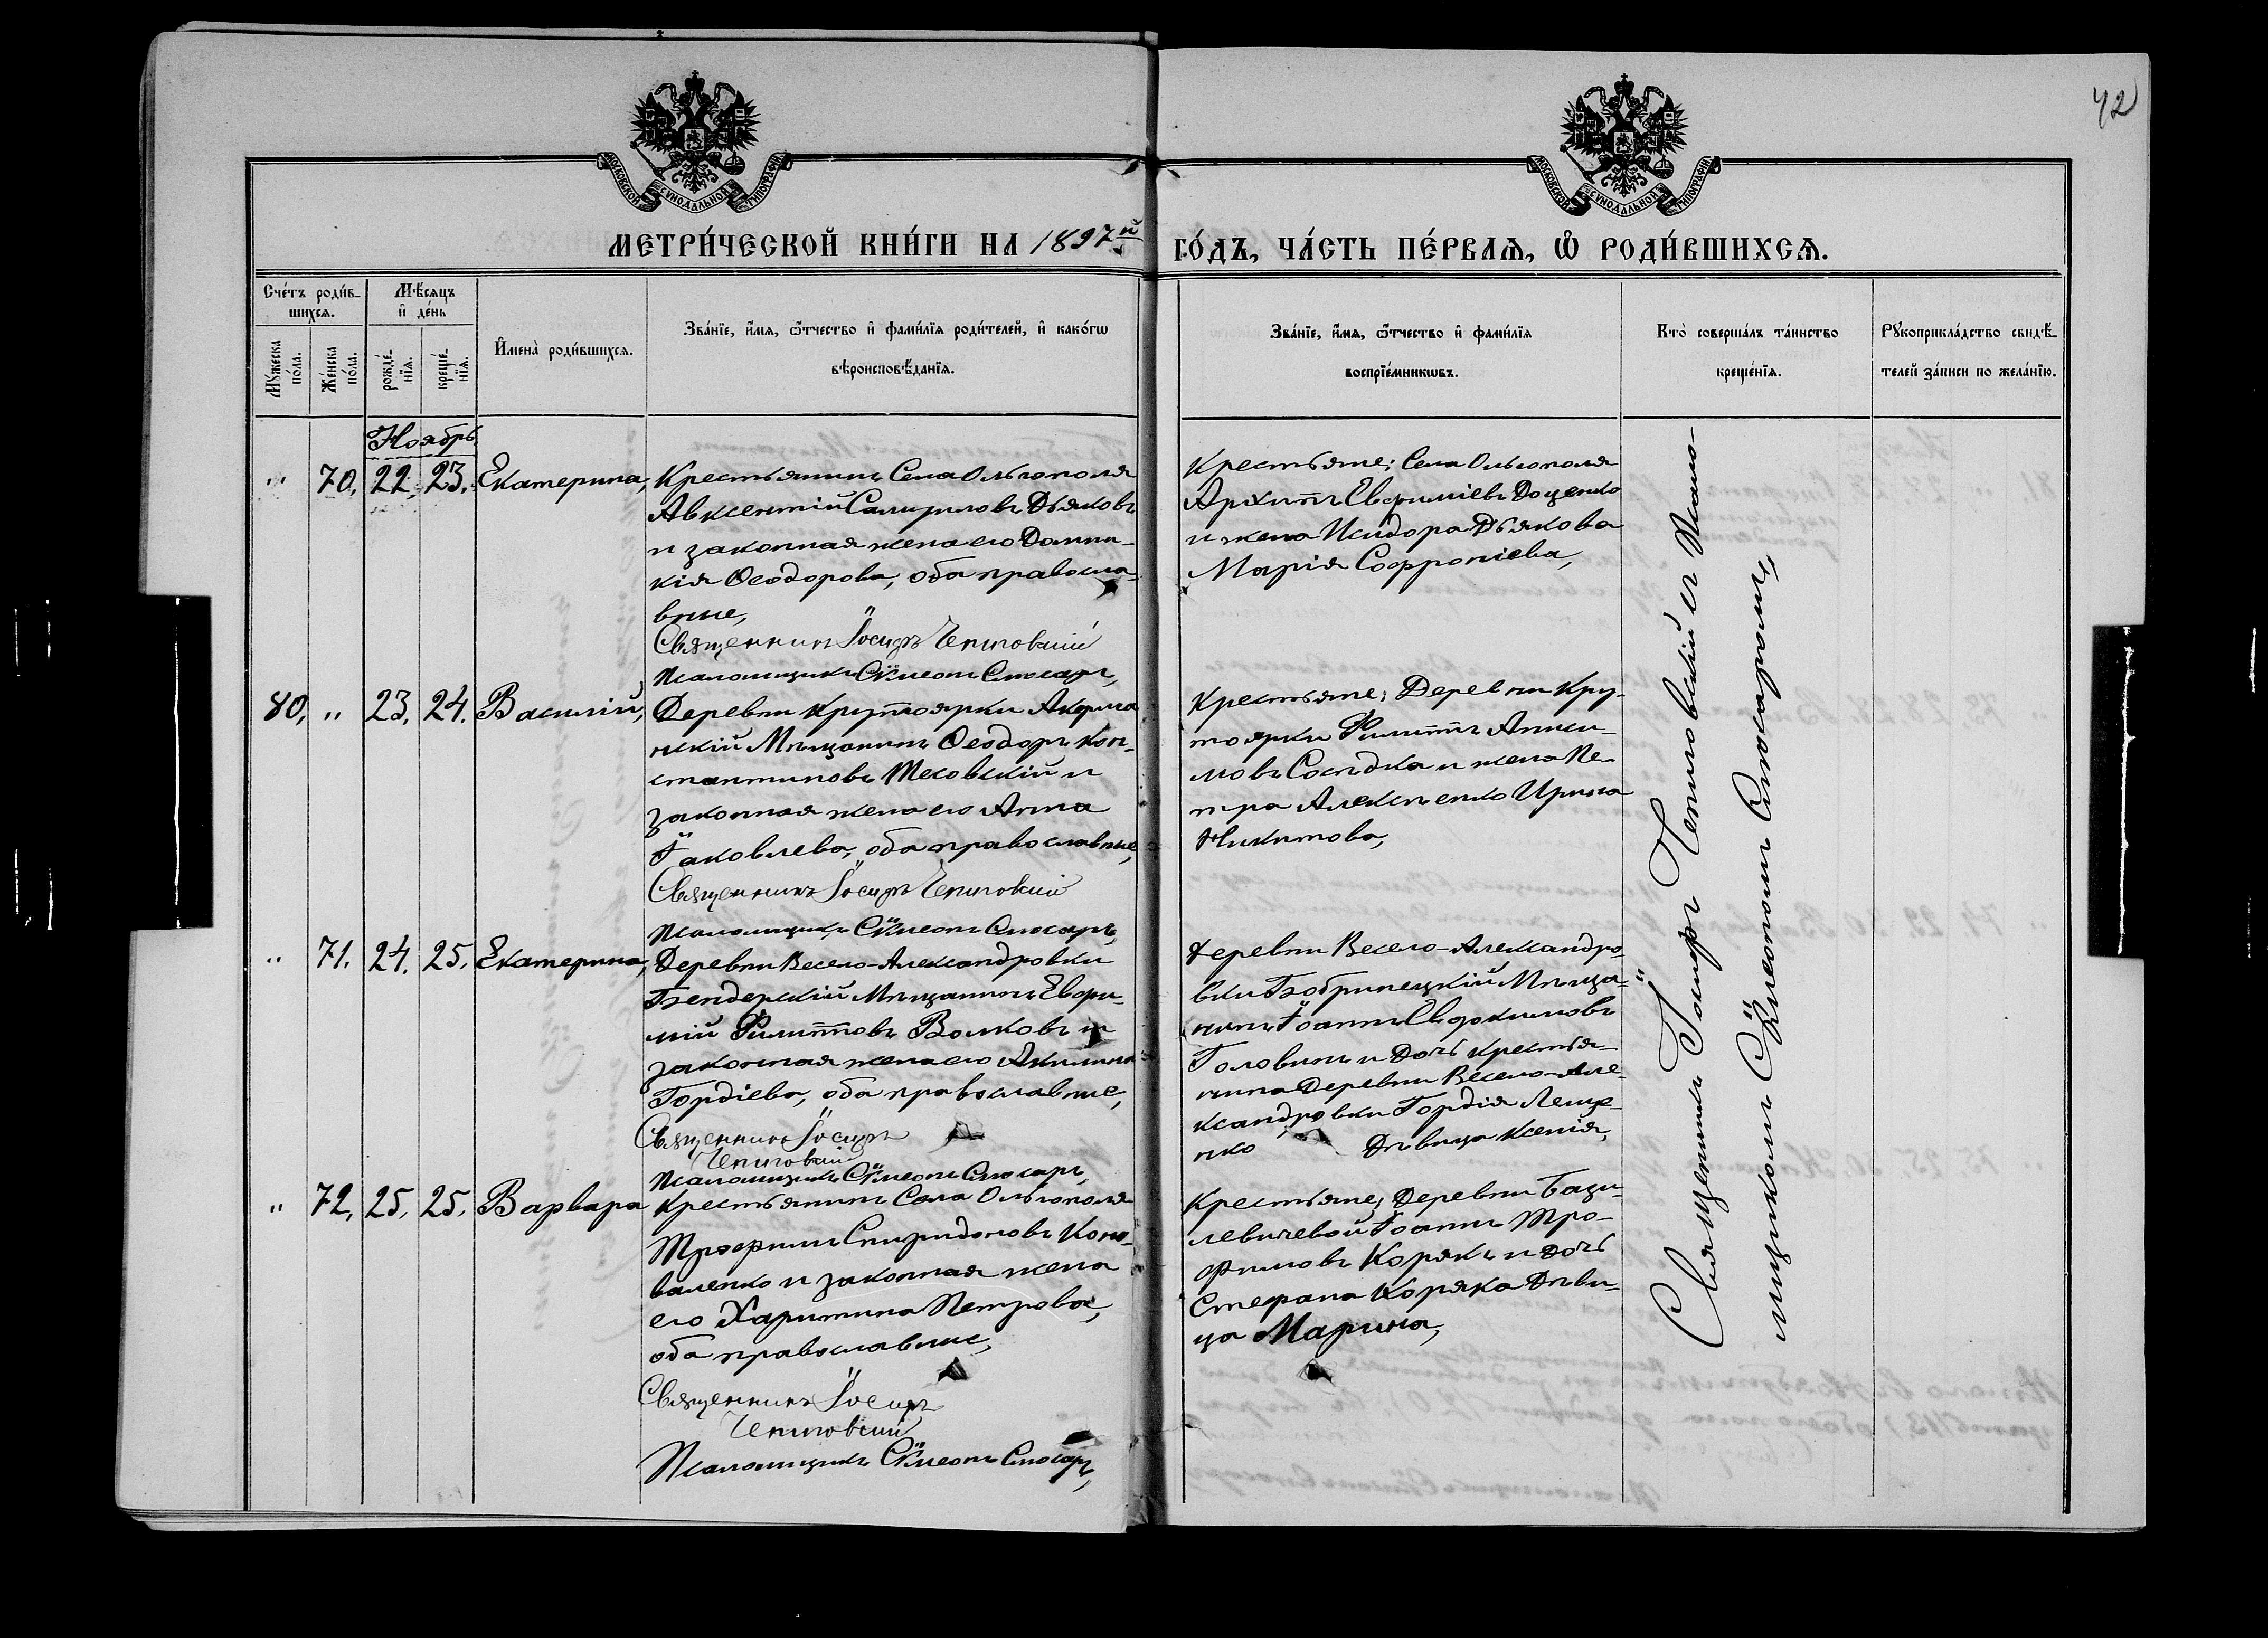 42
МОСКОВСКОЙ СѴНОДАЛЬНОЙ ТИПОГРАФІИ
МОСКОВСКОЙ СѴНОДАЛЬНОЙ ТИПОГРАФІИ
МЕТРИ́ЧЕСКОЙ КНИ́ГИ НА 1897й ГО́ДЪ, ЧА́СТЬ ПЕ́РВАѦ, Ѡ РОДИ́ВШИХСѦ.
Сче́тъ роди́в-
шихсѧ.
Мꙋ́жеска
по́ла.
Же́нска
по́ла.
Мѣ́сѧцъ
и҆ де́нь
рожде́-
нїѧ.
креще́-
нїѧ.
И҆мена̀ роди́вшихсѧ.
Зва́нїе, и҆́мѧ, ѻ҆́тчество и҆ фами́лїѧ роди́телей, и҆ како́гѡ
вѣроисповѣ́данїѧ.
Зва́нїе, и҆́мѧ, ѻ҆́тчество и҆ фами́лїѧ
воспрїе́мникѡвъ.
Кто̀ соверша́лъ та́инство
креще́нїѧ.
Рꙋкоприкла́дство свидѣ́-
телей за́писи по жела́нїю.
Ноябрь
" 70. 22. 23. Екатерина,
Крестьянинъ Села Ольгополя
Авксентій Дьяковъ
и законная жена его Домни-
кія Ѳеодорова, оба правосла-
вные,
Священникъ Іосифъ
Псаломщикъ Сѵмеонъ Слюсарь,
Крестьяне; Села Ольгополя
Архиппъ Евфиміевъ Доценко
и жена Исидора Дьякова
Марія Софроніева,
80. " 23. 24. Василій,
Деревни Крутоярки Акерма
нскій Мѣщанинъ Ѳеодоръ Кон-
стантиновъ и
законная жена его Анна
Іаковлева, оба православные,
Священникъ Іосифъ
Псаломщикъ Сѵмеонъ Слюсарь,
Крестьяне; Деревни Кру-
тоярки Филиппъ Аниси-
мовъ Сосѣдка и жена Пе-
тра Алексѣенко Ирина
Никитова,
" 71. 24. 25. Екатерина,
Деревни Весело-Александровки
Бендерскій Мѣщанинъ Евфи-
мій Филипповъ Волковъ и
законная жена его Акилина
Гордіева, оба православные,
Священникъ Іосифъ
Псаломщикъ Сѵмеонъ Слюсарь,
Деревни Весело-Александро-
вки Бобринецкій Мѣща-
нинъ Іоаннъ Евдокимовъ
Головинъ и дочь крестья-
нина Деревни Весело-Але-
ксандровки Гордія Леще-
нко Дѣвица Ксенія,
" 72. 25. 25. Варвара
Крестьянинъ Села Ольгополя
Трофимъ Спиридоновъ Коно-
валенко и законная жена
его Харитина Петрова,
оба православные,
Священникъ Іосифъ
Псаломщикъ Сѵмеонъ Слюсарь,
Крестьяне; Деревни Бази-
левичевой Іоаннъ Тро-
фимовъ Корякъ и дочь
Стефана Коряка Дѣви-
ца Марина,
Священникъ Іосифъ съ Псало-
мщикомъ Сѵмеономъ Слюсаромъ,